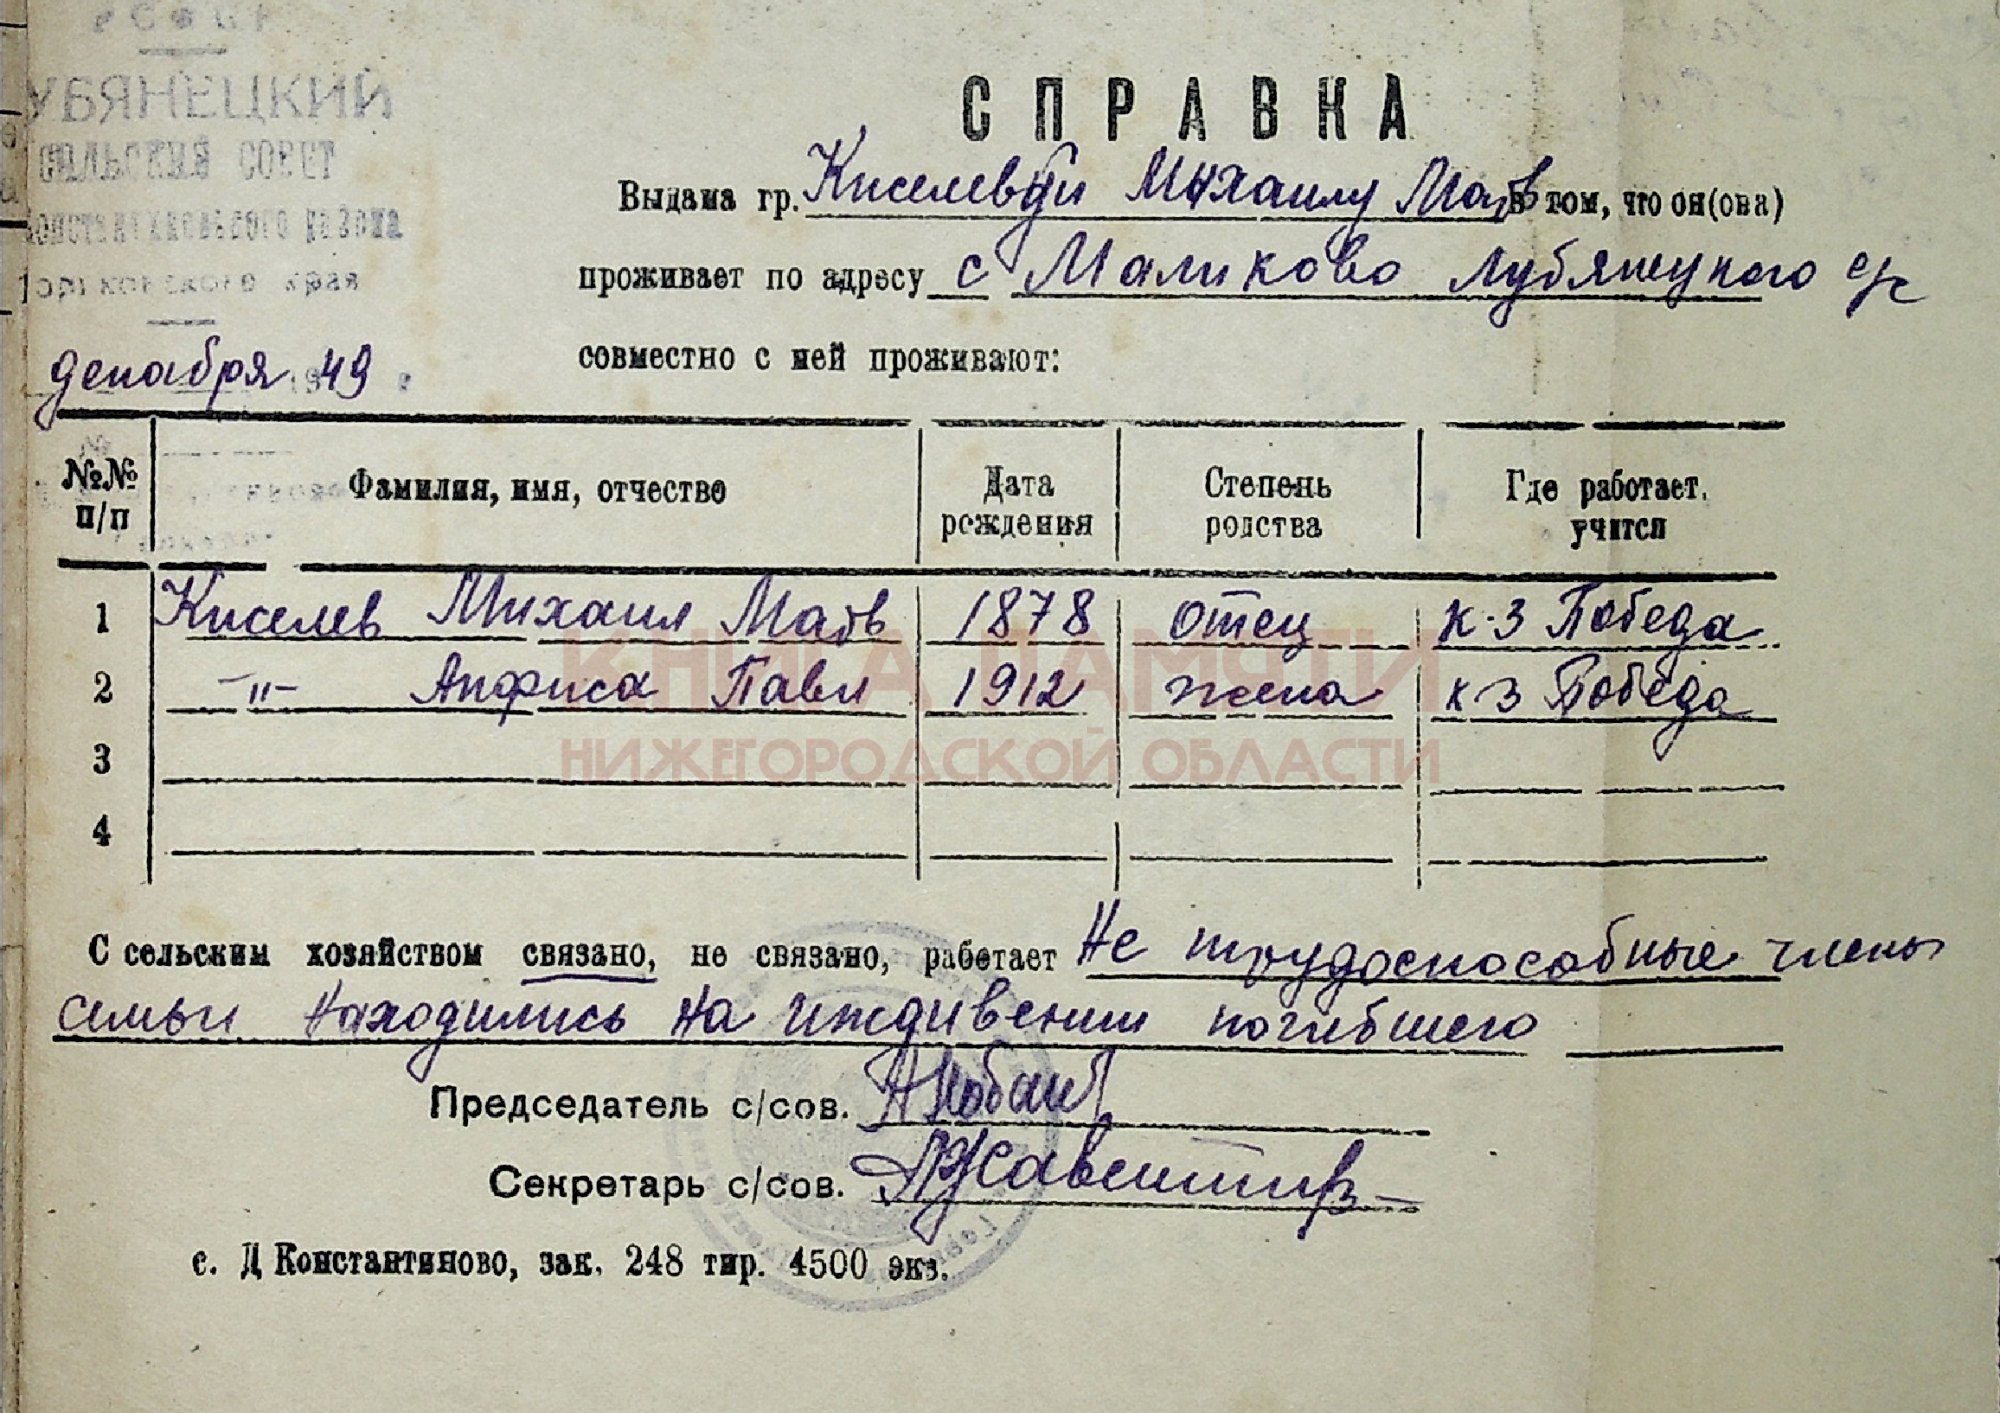 РСФСР
УБЯНЕЦКИЙ
СЕЛЬСКИЙ СОВЕТ
Константиновского района
Горьковского края
декабря 1949 г
СПРАВКА
Выдана гр. Киселеву Михаилу Матв в том, что он(она)
проживает по адресу с Маликово Лубянецкого с/с
совместно с ней проживают:
№№ п/п Фамилия, имя, отчество Дата рождения Степень родства Где работает, учится
1 Киселев Михаил Матв 1878 отец к-з Победа
2 -"- Анфиса Павл 1912 жена к-з Победа
3
4
КНИГА ПАМЯТИ
НИЖЕГОРОДСКОЙ ОБЛАСТИ
С сельским хозяйством связано, не связано, работает Не трудоспособные члены
семьи находились на иждивении погибшего
Председатель с/сов.
Секретарь с/сов.
с. Д Константиново, зак. 248 тир. 4500 экз.